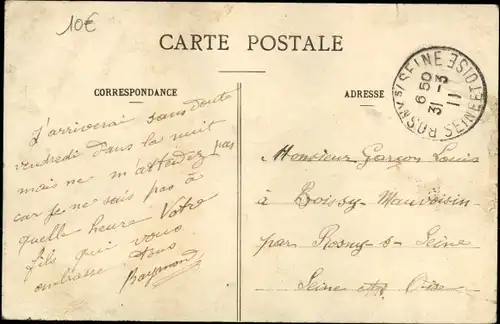 10€
CARTE POSTALE
CORRESPONDANCE
ADRESSE
ROSNY S/ SEINE
SEINE ET OISE
6 50
31 - 3
11
J'arriverai sans doute
vendredi dans la nuit
mais ne m'attendez pas
car je ne sais pas à
quelle heure Votre
fils qui vous
embrasse tous
Raymond
Monsieur Garçon Louis
à Boissy-Mauvoisin
par Rosny-s-Seine
Seine et Oise